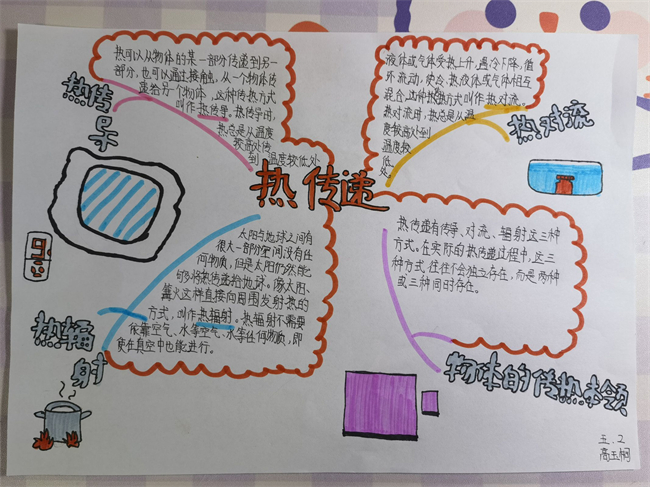 热传导
热可以从物体的某一部分传递到另一
部分,也可以通过接触,从一个物体传
递给另一个物体,这种传热方式
叫作热传导。热传导时,
热总是从温度
较高处传
到温度较低处
热对流
液体或气体受热上升,遇冷下降,循
环流动,使冷、热液体或气体相互
混合,这种传热方式叫作热对流。
热对流时,热总是从温
度较高处到
温度较
低
处。
热传递
热辐射
太阳与地球之间有
很大一部分空间没有任
何物质,但是太阳仍然能
够将热传递给地球。像太阳、
篝火这样直接向周围发射热的
方式,叫作热辐射。热辐射不需要
依靠空气、水等空气、水等任何物质,即
使在真空中也能进行。
热传递有传导、对流、辐射这三种
方式,在实际的热传递过程中,这三
种方式往往不会独立存在,而是两种
或三种同时存在。
物体的传热本领
五.2
高玉桐